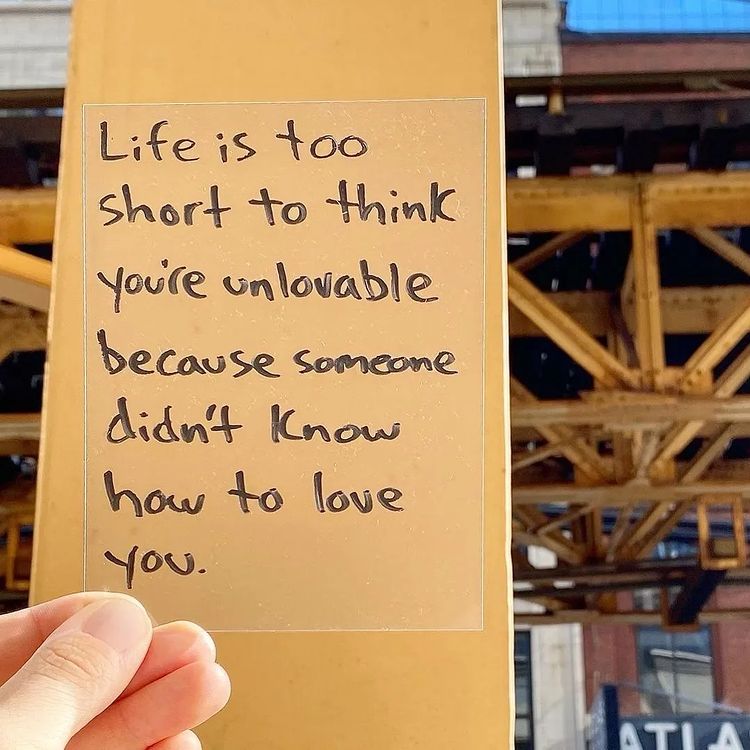 Life is too
short to think
you're unlovable
because someone
didn't know
how to love
you.
ATLA